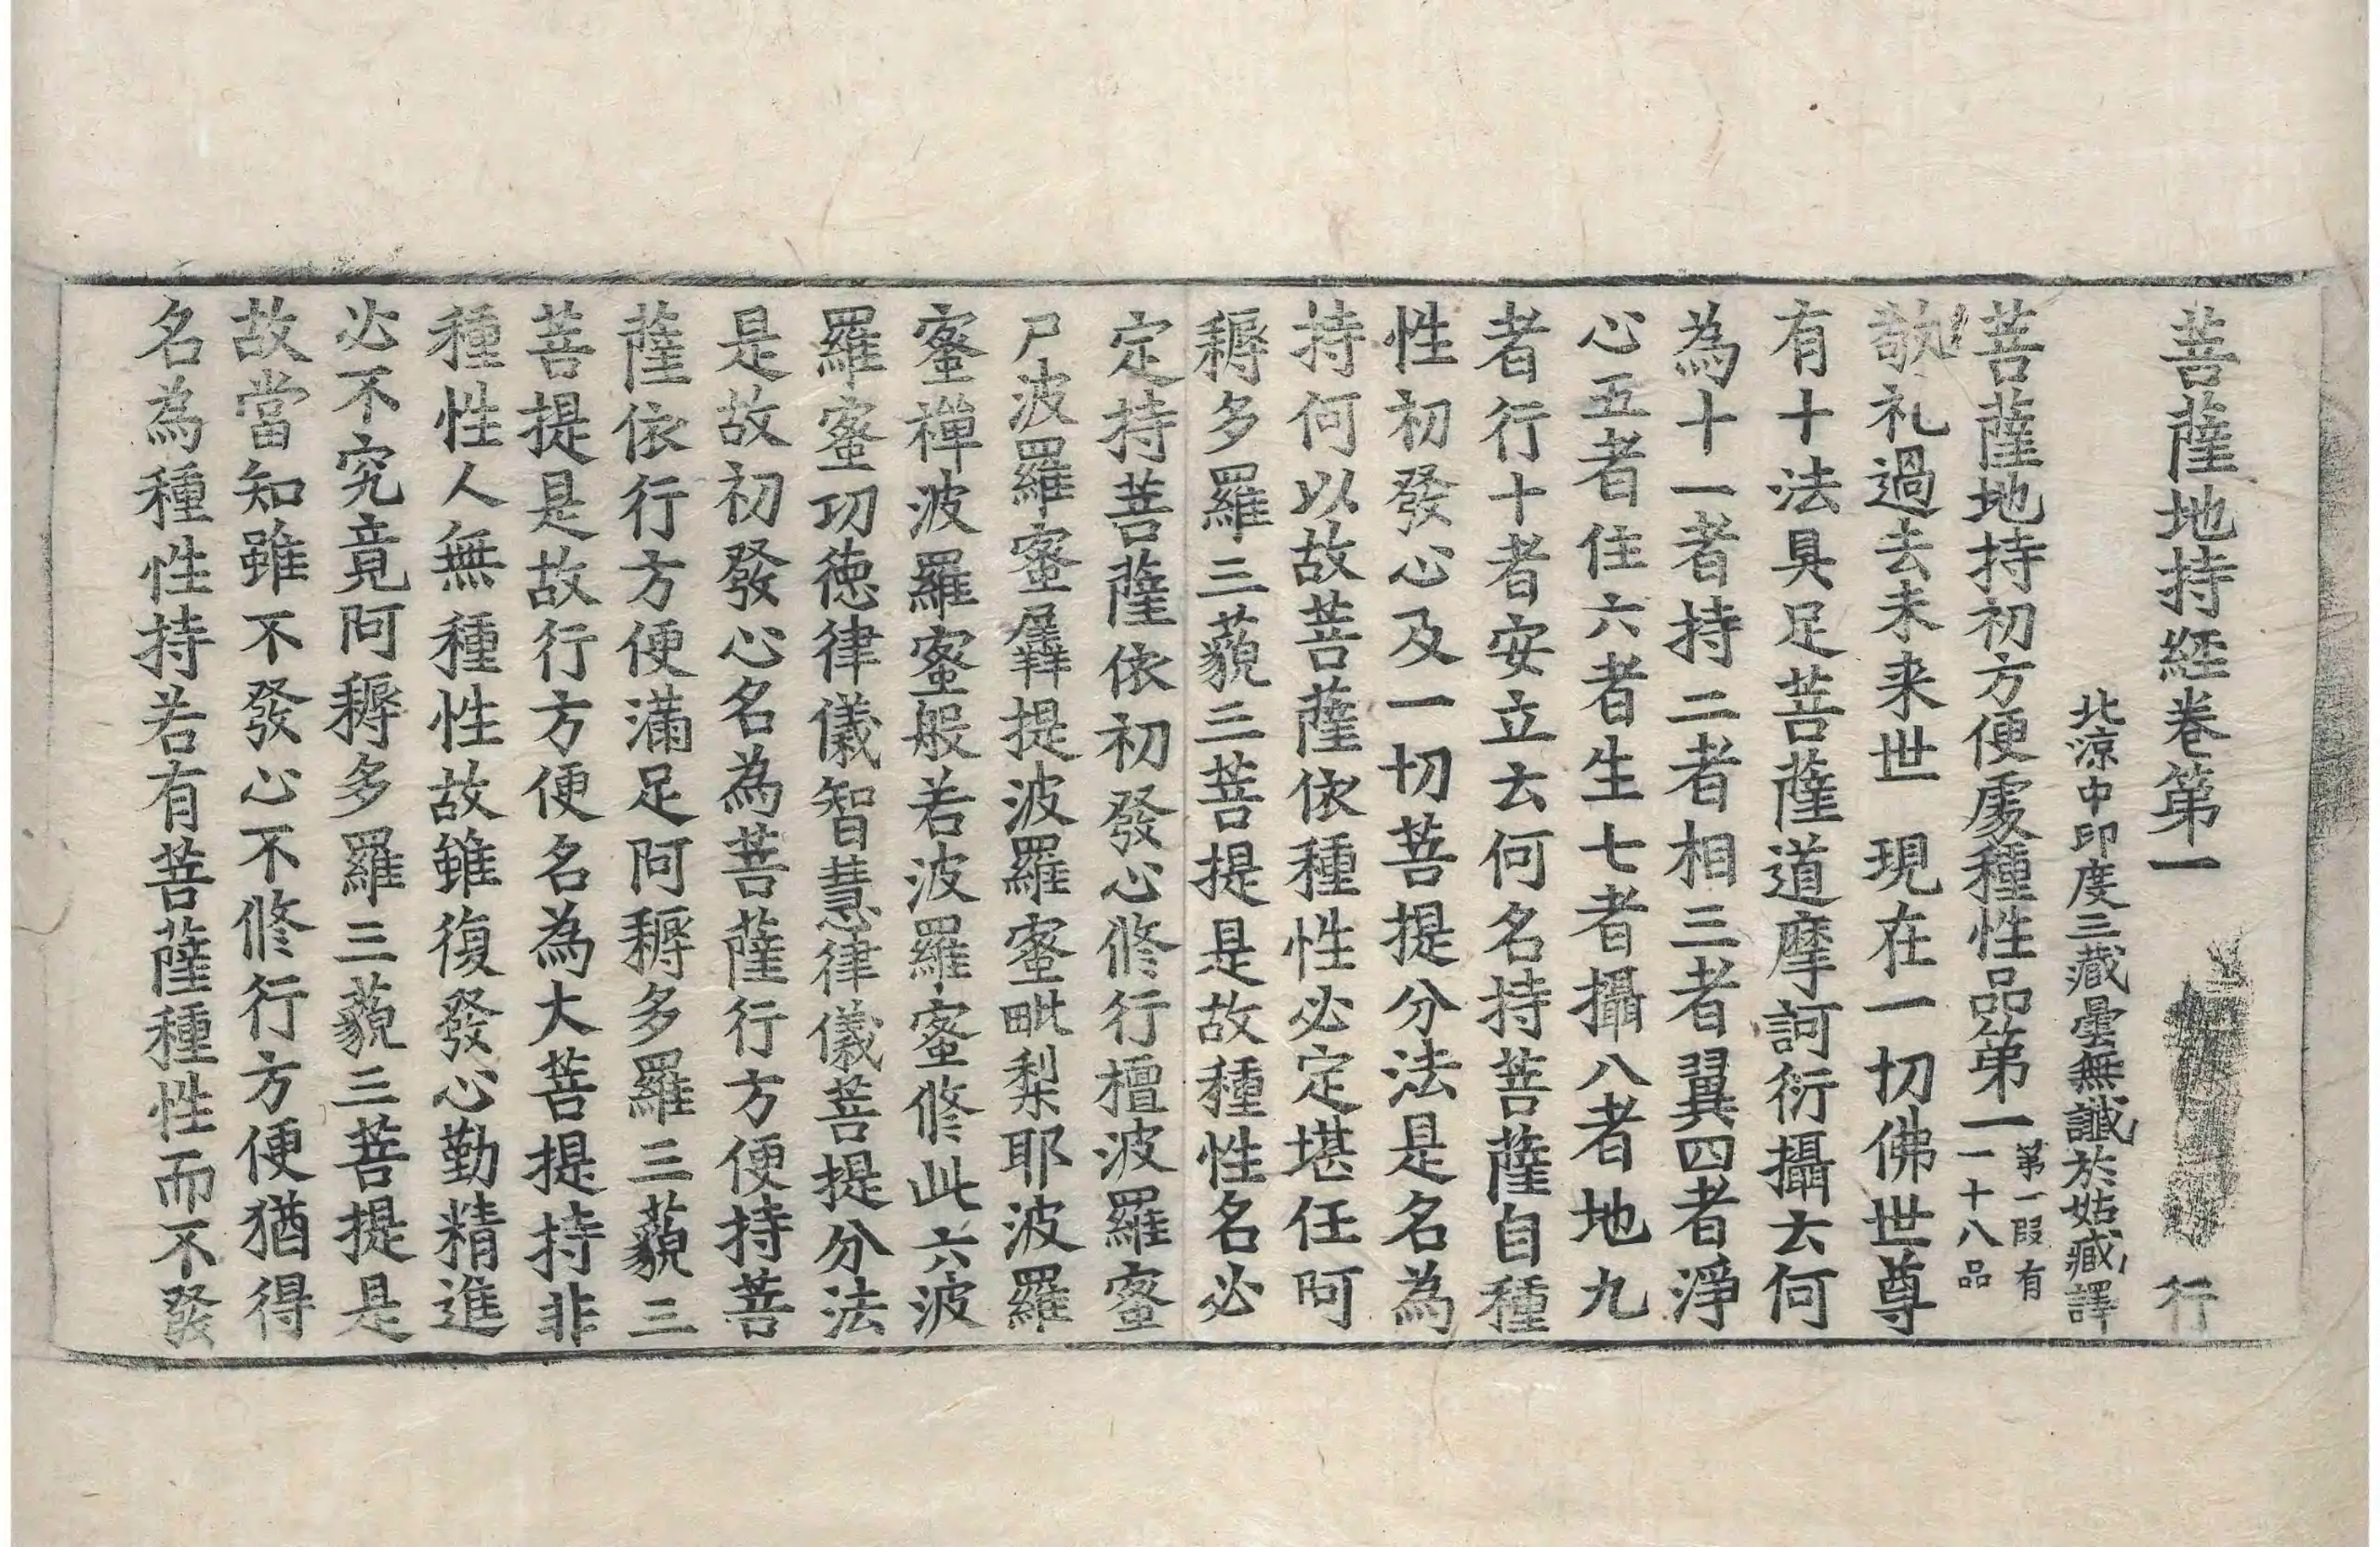 菩薩地持経卷第一　行
北涼中印度三藏曇無讖於姑臧譯
菩薩地持初方便處種性品第一第一段有一十八品
敬礼過去未来世　現在一切佛世尊
有十法具足菩薩道摩訶衍攝去何
為十一者持二者相三者翼四者淨
心五者住六者生七者攝八者地九
者行十者安立去何名持菩薩自種
性初發心及一切菩提分法是名為
持何以故菩薩依種性必定堪任阿
耨多羅三藐三菩提是故種性名必
定持菩薩依初發心修行檀波羅蜜
尸波羅蜜羼提波羅蜜毗梨耶波羅
蜜禪波羅蜜般若波羅蜜修此六波
羅蜜功徳律儀智慧律儀菩提分法
是故初發心名為菩薩行方便持菩
薩依行方便滿足阿耨多羅三藐三
菩提是故行方便名為大菩提持非
種性人無種性故雖復發心勤精進
必不究竟阿耨多羅三藐三菩提是
故當知雖不發心不修行方便猶得
名為種性持若有菩薩種性而不發